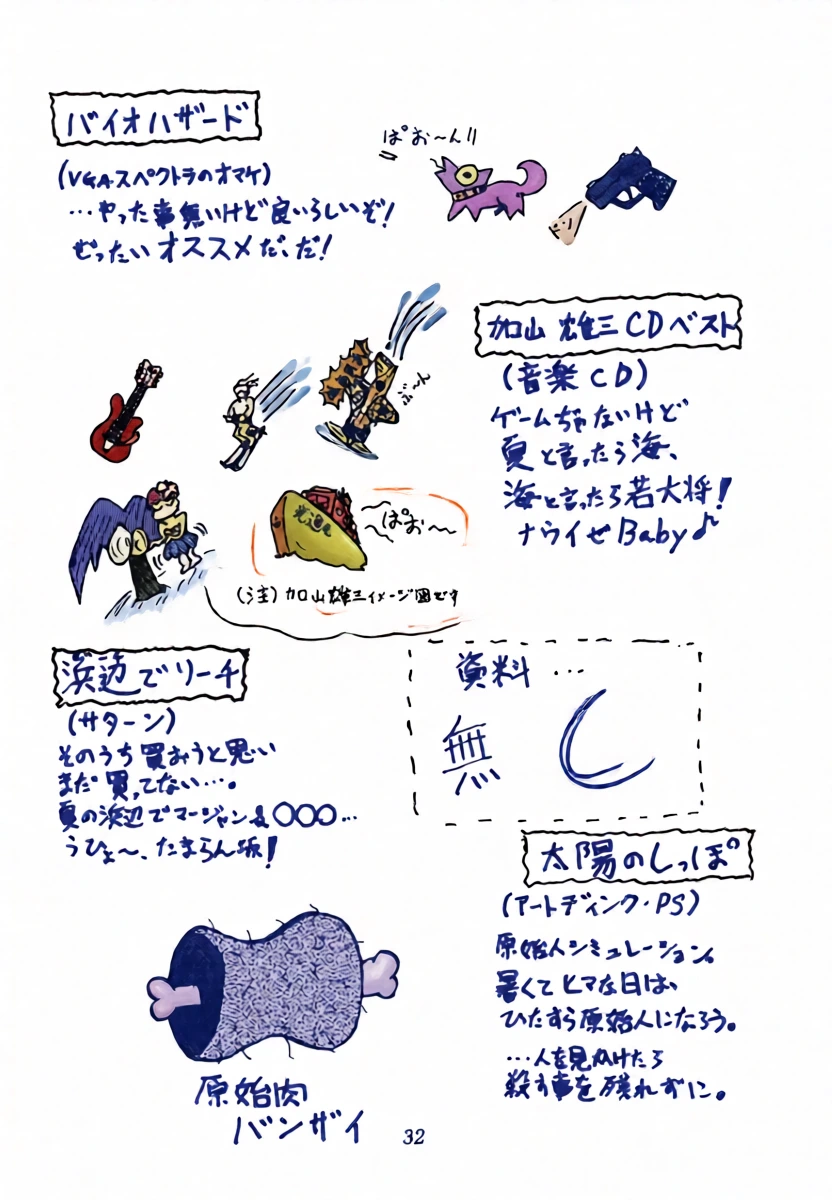 バイオハザード
(VGAスペクトラのオマケ)
…やった事無いけど良いらしいぞ!
ぜったいオススメだ、だ!
ぱお〜ん!!
加山 雄三CDベスト
(音楽CD)
ゲームぢゃないけど
夏と言ったら海、
海と言ったら若大将!
ナウイぜBaby♪
ぶ〜ん
光進丸
ぱお〜〜
(注)加山雄三イメージ図です
浜辺でリーチ
(サターン)
そのうち買おうと思い
まだ買ってない…。
夏の浜辺でマージャン&〇〇〇…
うひょ〜、たまらん坂!
資料…
無し
太陽のしっぽ
(アートディンク・PS)
原始人シミュレーション。
暑くてヒマな日は、
ひたすら原始人になろう。
…人を見かけたら
殺す事を忘れずに。
原始肉
バンザイ
32